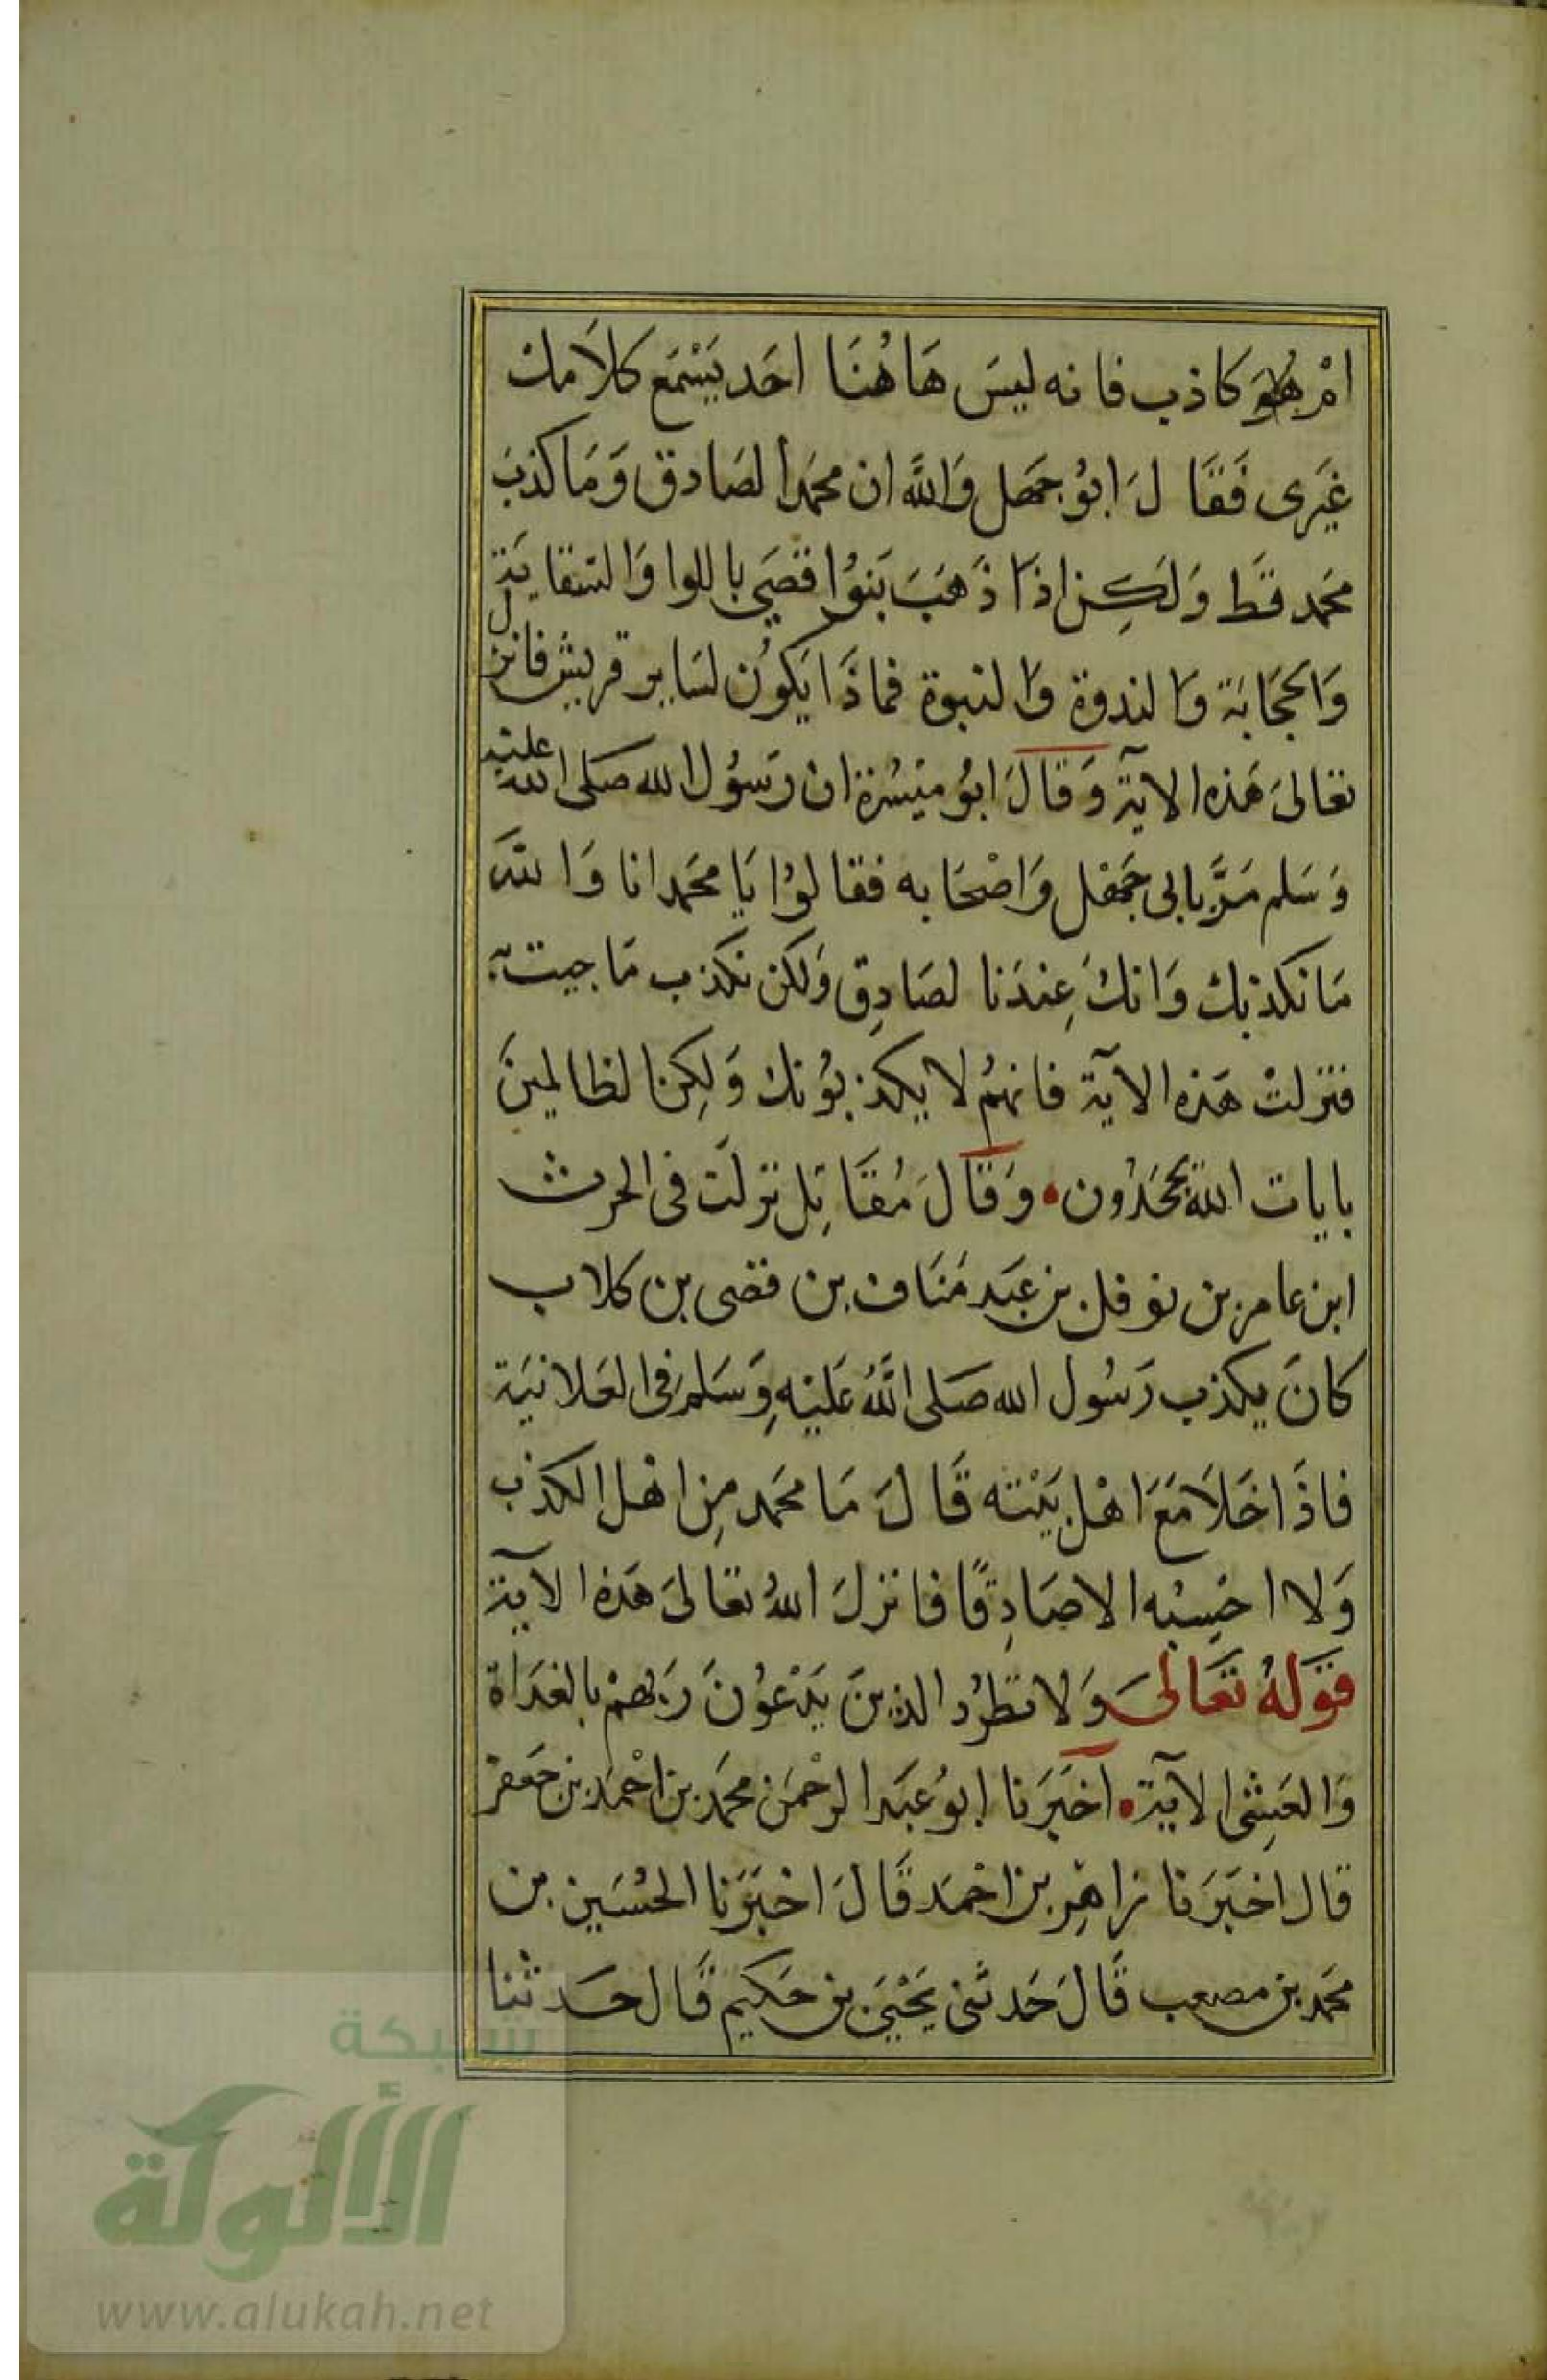 امْ هُوَ كاذب فانه ليسَ هَاهُنَا احَد يَسْمَع كلاَمك
غيَرى فَقَالَ ابوُ جَهل وَاللَّه ان محمَدا لصَادق وَمَا كذبَ
محمَد قط وَلَكِن اذَا ذَهَبَ بَنوُا قصَي باللوا وَالسقايَة
وَالحجَابَة وَالندوة وَالنبوة فماذَا يَكوُن لسَاير قريش فانزل
تعَالىَ هَذه الآية وَقَالَ ابوُ ميْسَرة ان رَسوُل الله صَلى الله عليْه
وَسَلم مَرَّ بابى جَهْل وَاصْحَابه فقالوُا يَا محمَد انا وَاللهَ
مَا نكذبك وَانكَ عِندَنا لصَادِق وَلكن نكذب مَا جيت به
فنزلتْ هَذه الآية فانهمُ لا يكذبوُنك وَلكِن الظالمِينَ
بايات الله يجْحَدُون • وَقَالَ مُقَاتِل نزلَت فى الحرث
ابن عامر بن نوفل بن عَبَد مَنَاف بن قصى بن كلاب
كانَ يكذب رَسُول الله صَلى اللَّهُ عَليْهِ وَسَلم فى العَلانيَة
فاذَا خَلاَ مَعَ اهْل بَيْته قَالَ مَا محمَد مِن اهْل الكذب
وَلا احْسِبُه الا صَادِقًا فانزلَ اللهُ تعَالىَ هَذه الآية
قوَلهُ تعَالىَ وَلا تطرُد الذينَ يَدْعوُنَ رَبهمْ بالغدَاة
وَالعَشِى الآية • اخبَرَنا ابوُ عَبَد الرحْمَن محمَد بن احْمَد بن جَعفرْ
قال اخبَرَنا زاهِر بن احْمَد قَالَ اخبَرَنا الحُسَين بن
محمَد بن مصعب قَالَ حَدثنى يَحْيىَ بن حَكيم قَال حَدثنا
شبكة
الألوكة
www.alukah.net